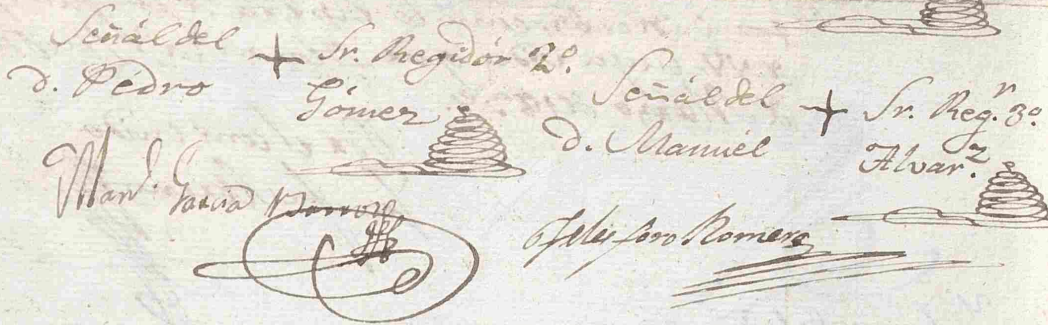 Señál del + Sr. Regidór 2º.
d. Pédro Gómez
Señál del + Sr. Regr. 3º.
d. Manuél Alvarz.
Manl. Garcia
Telesforo Romero